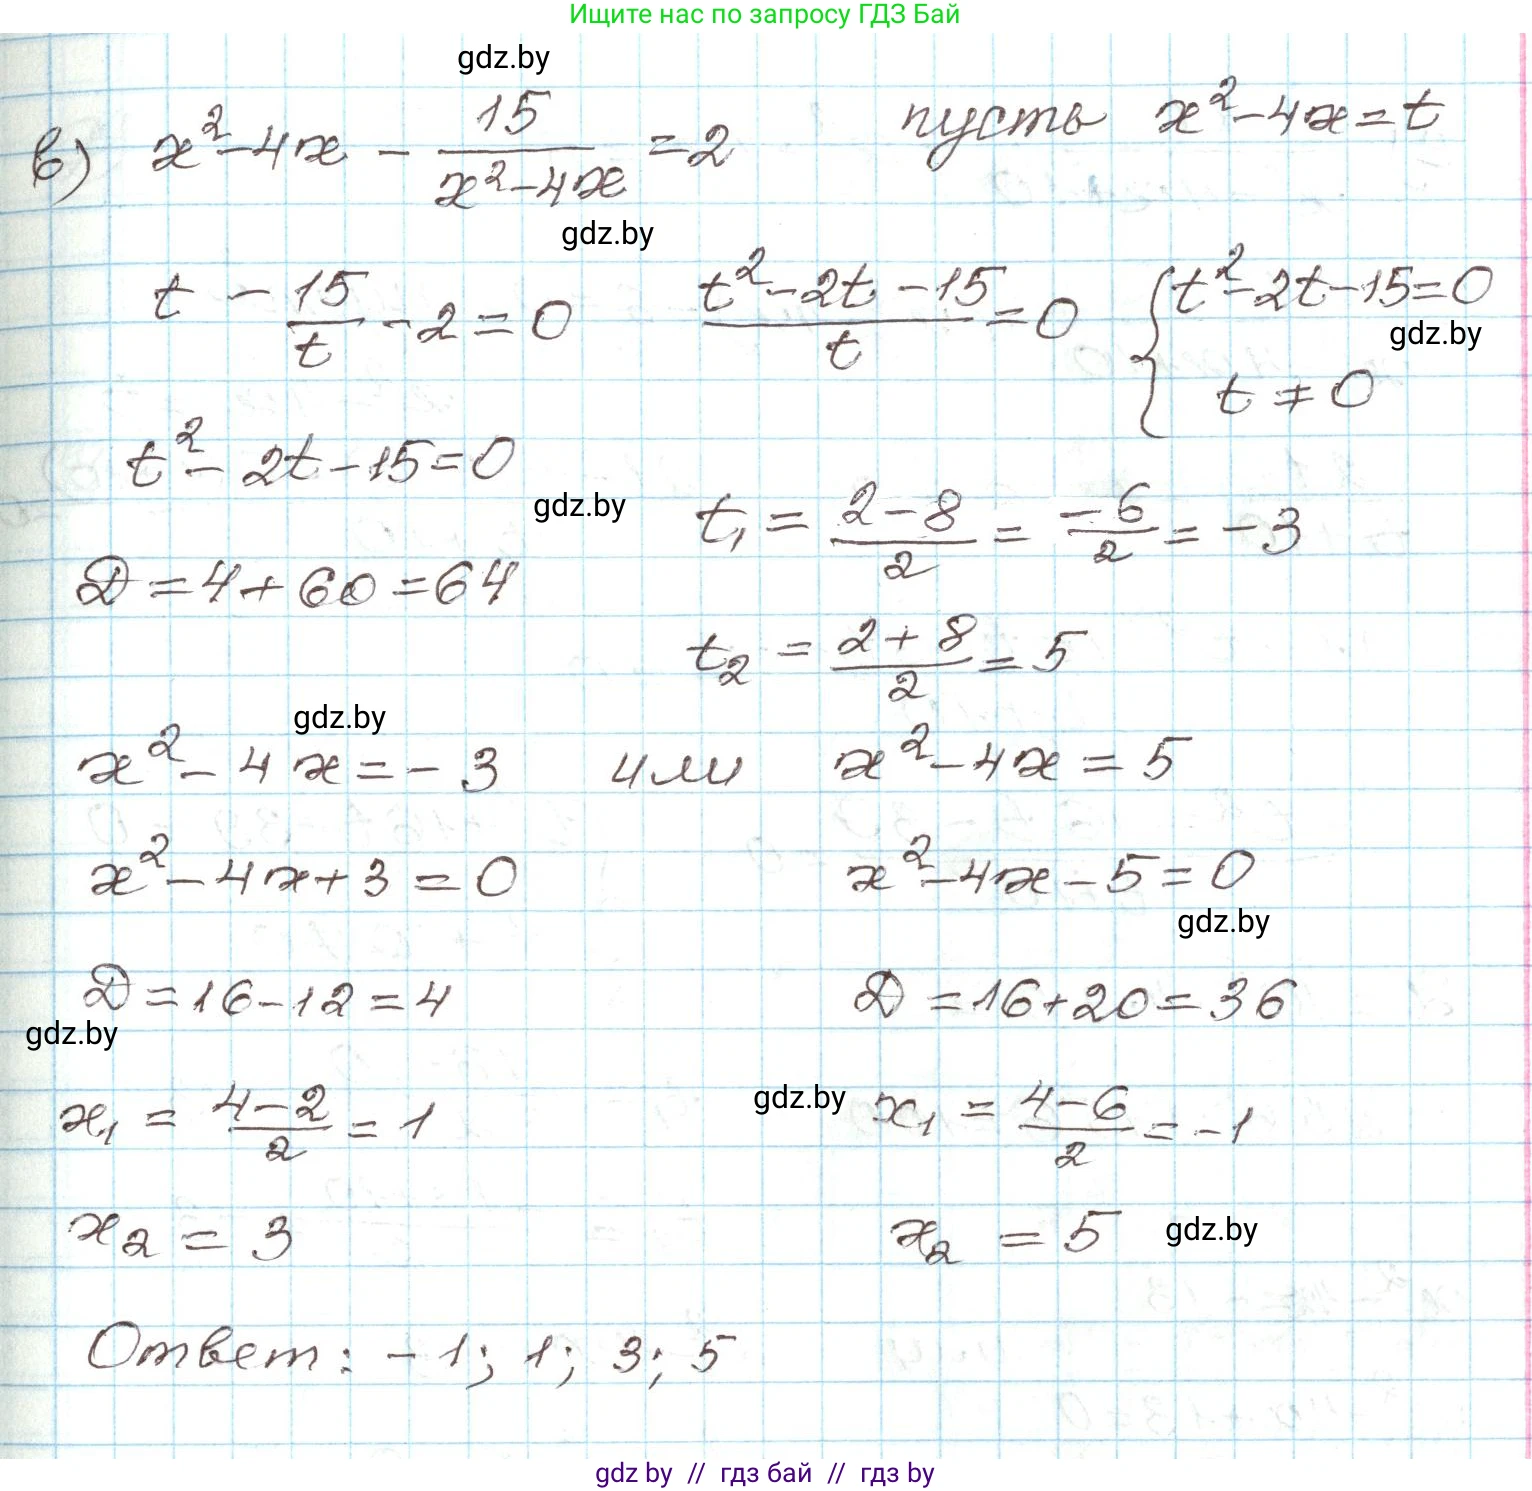 Ищите нас по запросу ГДЗ Бай
gdz.by
в) x² - 4x - 15/(x² - 4x) = 2 пусть x² - 4x = t
gdz.by
t - 15/t - 2 = 0 (t² - 2t - 15)/t = 0 { t² - 2t - 15 = 0
gdz.by
t ≠ 0
t² - 2t - 15 = 0
gdz.by
t₁ = (2 - 8)/2 = -6/2 = -3
D = 4 + 60 = 64
t₂ = (2 + 8)/2 = 5
gdz.by
x² - 4x = -3 или x² - 4x = 5
x² - 4x + 3 = 0 x² - 4x - 5 = 0
gdz.by
D = 16 - 12 = 4 D = 16 + 20 = 36
gdz.by
x₁ = (4 - 2)/2 = 1 gdz.by x₁ = (4 - 6)/2 = -1
x₂ = 3 x₂ = 5 gdz.by
Ответ: -1; 1; 3; 5
gdz by // гдз бай // гдз by